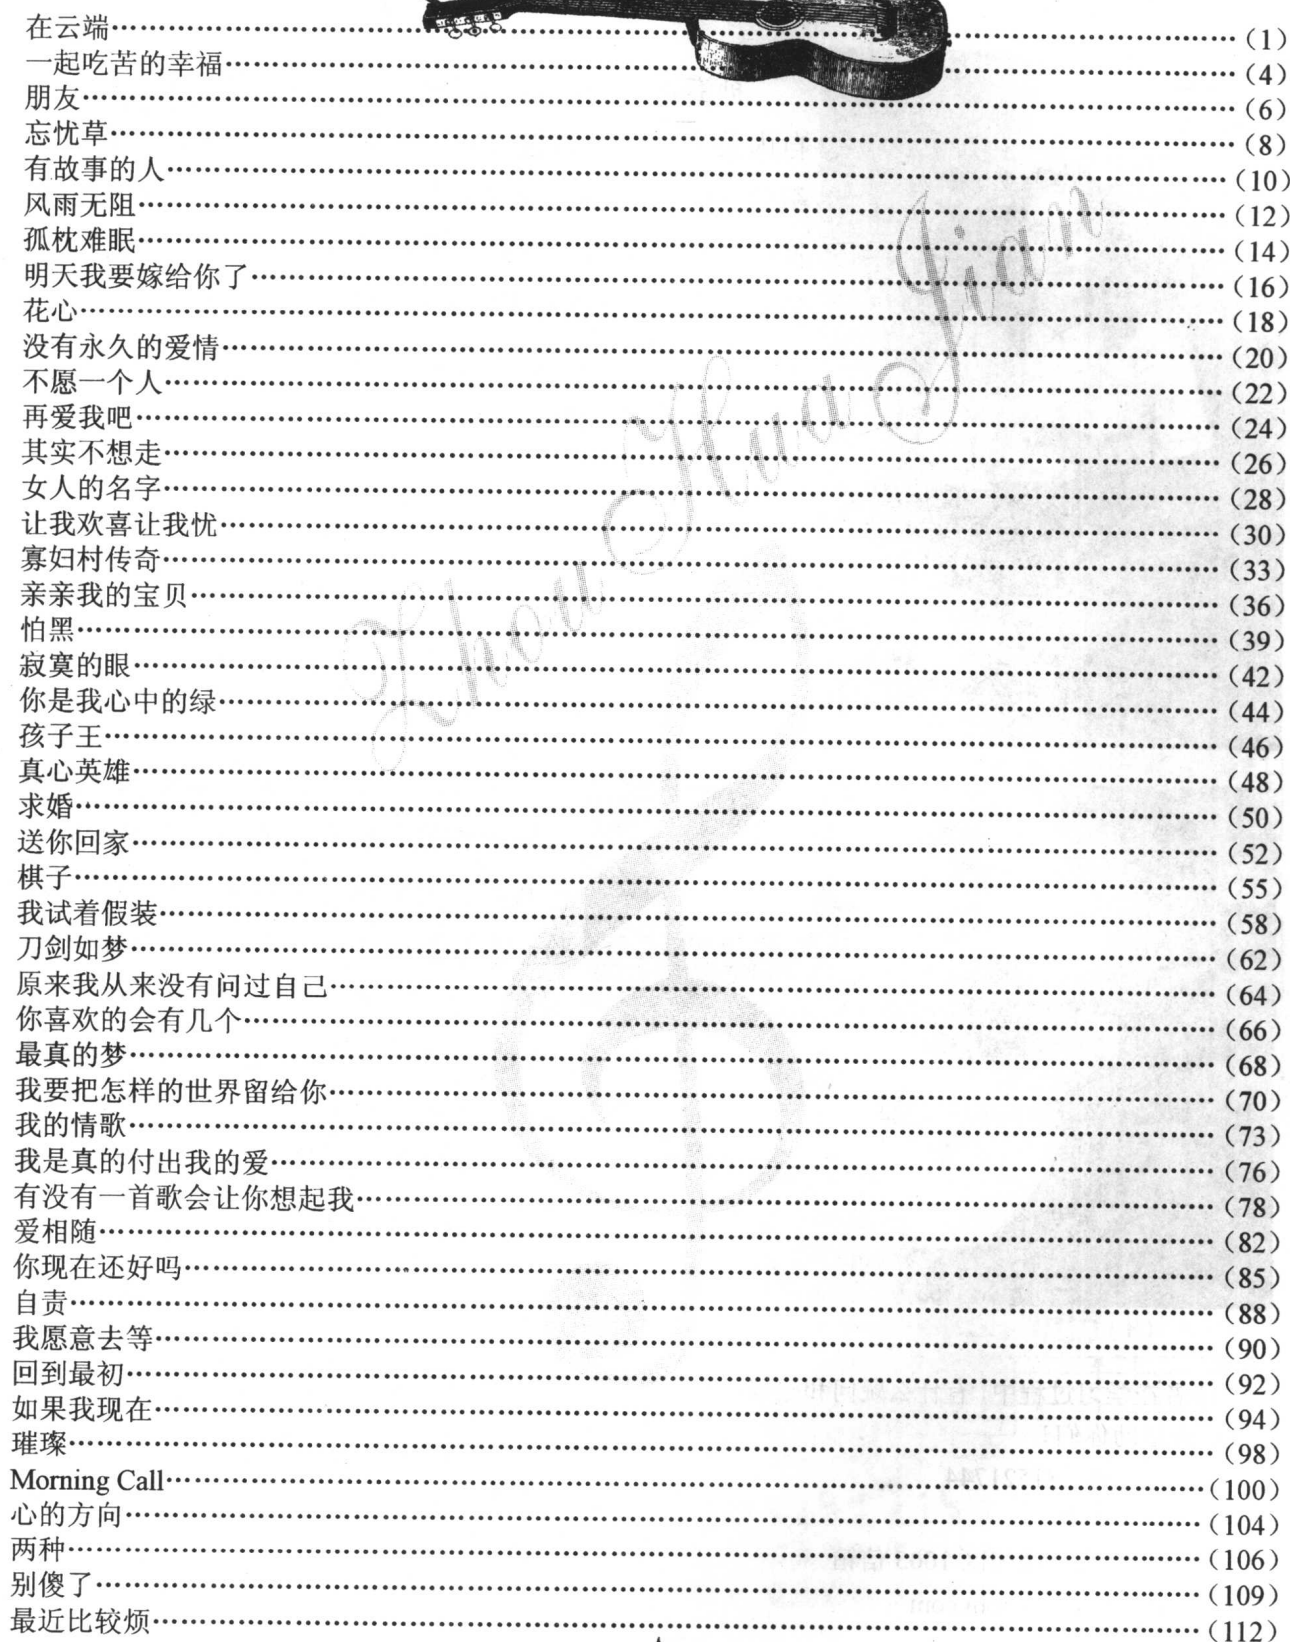 在云端……(1)
一起吃苦的幸福……(4)
朋友……(6)
忘忧草……(8)
有故事的人……(10)
风雨无阻……(12)
孤枕难眠……(14)
明天我要嫁给你了……(16)
花心……(18)
没有永久的爱情……(20)
不愿一个人……(22)
再爱我吧……(24)
其实不想走……(26)
女人的名字……(28)
让我欢喜让我忧……(30)
寡妇村传奇……(33)
亲亲我的宝贝……(36)
怕黑……(39)
寂寞的眼……(42)
你是我心中的绿……(44)
孩子王……(46)
真心英雄……(48)
求婚……(50)
送你回家……(52)
棋子……(55)
我试着假装……(58)
刀剑如梦……(62)
原来我从来没有问过自己……(64)
你喜欢的会有几个……(66)
最真的梦……(68)
我要把怎样的世界留给你……(70)
我的情歌……(73)
我是真的付出我的爱……(76)
有没有一首歌会让你想起我……(78)
爱相随……(82)
你现在还好吗……(85)
自责……(88)
我愿意去等……(90)
回到最初……(92)
如果我现在……(94)
璀璨……(98)
Morning Call……(100)
心的方向……(104)
两种……(106)
别傻了……(109)
最近比较烦……(112)
Zhou Hua Jian